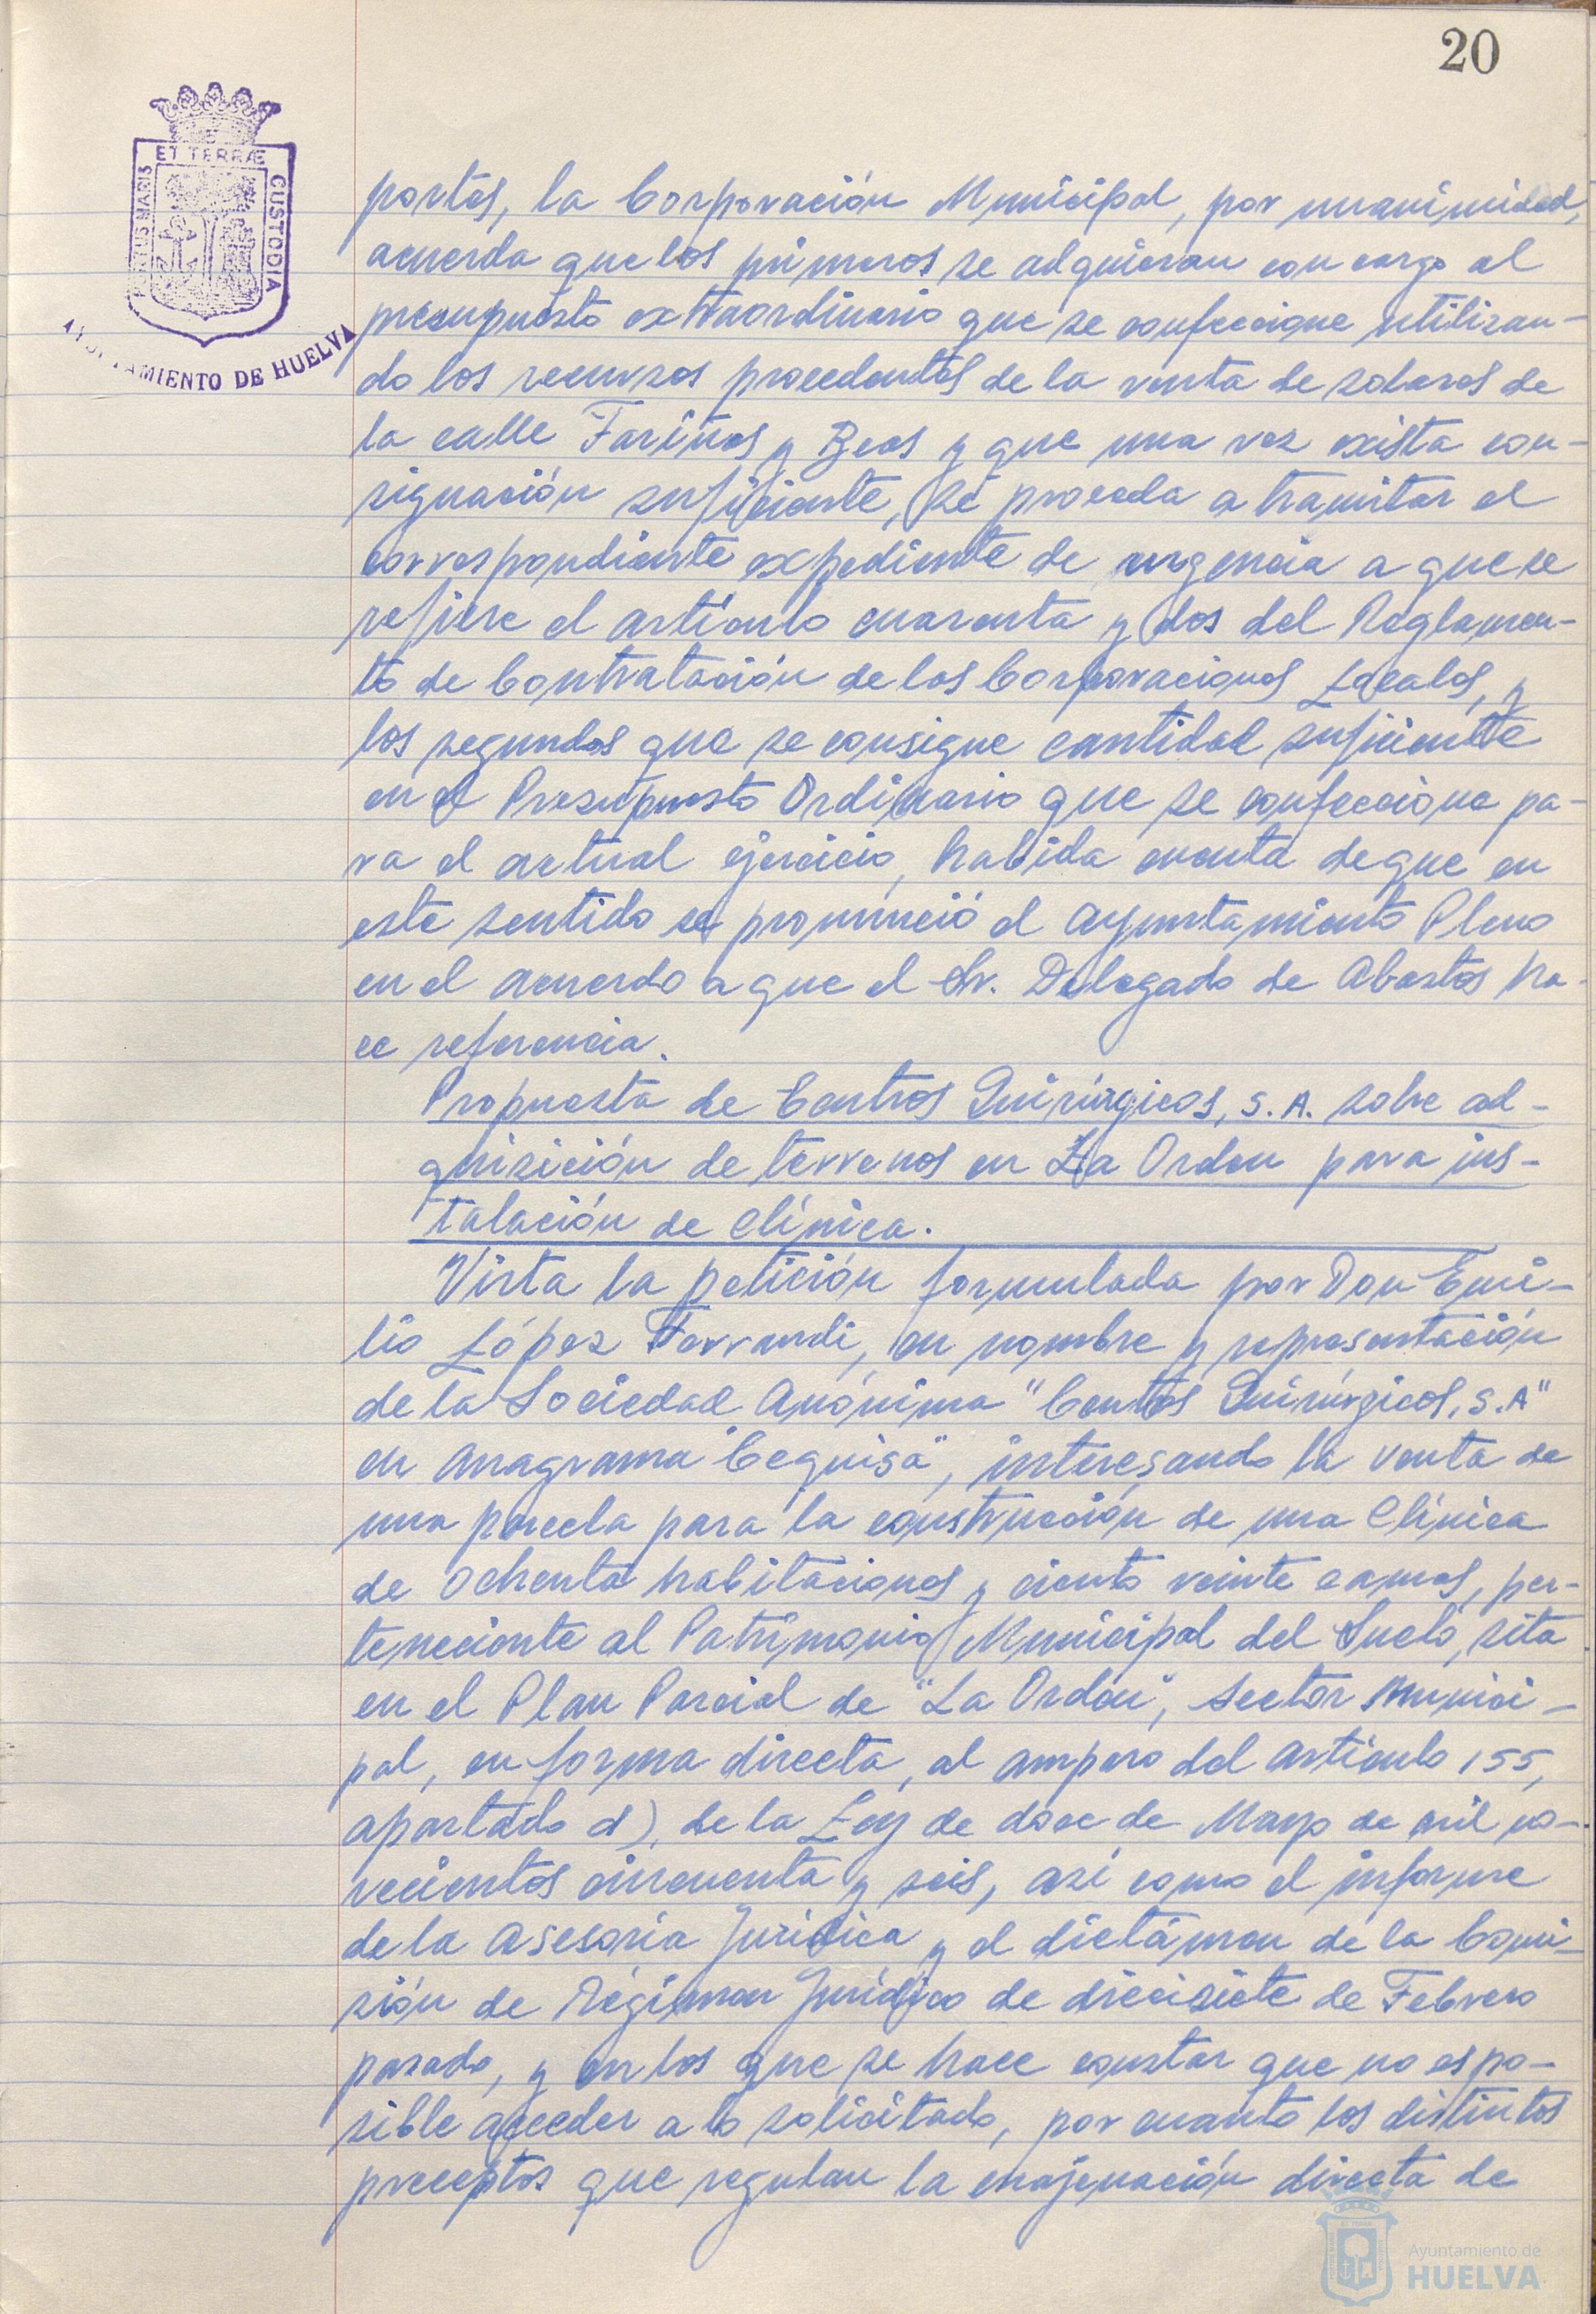 20
ET TERRÆ
PORTUS MARIS
CUSTODIA
AYUNTAMIENTO DE HUELVA
portes, la Corporación Municipal, por unanimidad,
acuerda que los primeros se adquieran con cargo al
presupuesto extraordinario que se confeccione utilizan-
do los recursos procedentes de la venta de solares de
la calle Fariñas y Beas y que una vez exista con-
signación suficiente, se proceda a tramitar el
correspondiente expediente de urgencia a que se
refiere el artículo cuarenta y dos del Reglamen-
to de Contratación de las Corporaciones Locales, y
los segundos que se consigne cantidad suficiente
en el Presupuesto Ordinario que se confeccione pa-
ra el actual ejercicio, habida cuenta de que en
este sentido se pronunció el Ayuntamiento Pleno
en el acuerdo a que el Sr. Delegado de Abastos ha-
ce referencia.
Propuesta de Centros Quirúrgicos, S.A. sobre ad-
quisición de terrenos en La Orden para ins-
talación de Clínica.
Vista la petición formulada por Don Emi-
lio López Ferrandi, en nombre y representación
de la Sociedad Anónima "Centros Quirúrgicos, S.A"
en anagrama "Cequisa", interesando la venta de
una parcela para la construcción de una Clínica
de ochenta habitaciones y ciento veinte camas, per-
teneciente al Patrimonio Municipal del Suelo, sita
en el Plan Parcial de "La Orden", sector munici-
pal, en forma directa, al amparo del artículo 155,
apartado d), de la Ley de doce de Mayo de mil no-
vecientos cincuenta y seis, así como el informe
de la Asesoría Jurídica y el dictámen de la Comi-
sión de Régimen Jurídico de diecisiete de Febrero
pasado, y en los que se hace constar que no es po-
sible acceder a lo solicitado, por cuanto los distintos
preceptos que regulan la enajenación directa de
Ayuntamiento de
HUELVA